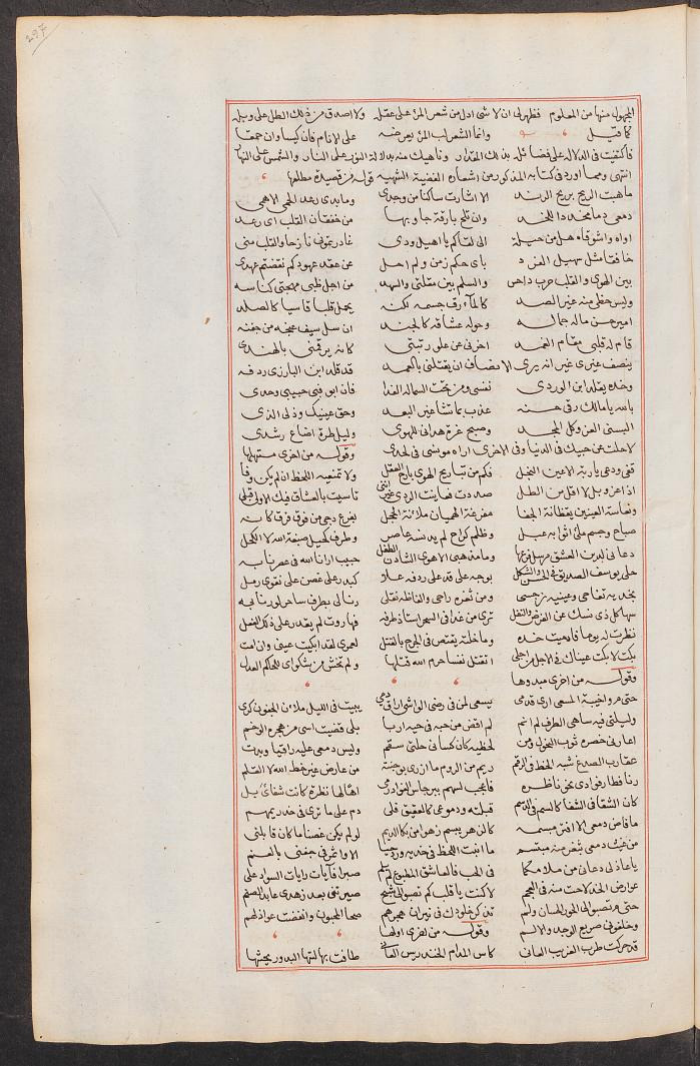 297
المجهول منها من المعلوم فظهر لي ان لا شئ ادل من شعر المرء على عقله ولا اصدق من ذلك الطل على وبله
كما قيل وانما الشعر لب المرء يعرضه على الانام فان كيسا وان حمقا
فاكتفيت في الدلالة على فضائله بذلك المقدار وناهيك منه بدلالة النور على النار والشمس على النهار
انتهى ومما اورد في كتابه المذكور من اشعاره الغضية الشهيه قوله من قصيدة مطلعها
ما هبت الريح بريح الرند الا اثارت ساكنا من وجدي وما بدى رعد الحمى الاهمى
دمعي دما مخددا للخد وان تلح بارقة جاوبها من خفقان القلب اى رعد
اواه واشوقاه هل من حيلة الى لقاكم يا اهيل ودي غادرتموني نازحا والقلب مني
باى حكم زمن ولم احل عن عقد عهودكم نقضتم عهدي
بين الهوى والقلب حرب داحس والسلم بين مقلتي والسهد من اجل ظبي مهجتي كناسه
وليس حظي منه غير الصد كالماء رق جسمه لكنه يحمل قلبا قاسيا كالصلد
امير حسن ماله جماله وحوله عشاقه كالجند ان سل سيف غنجه من جفنه
قام له قلبي مقام الغمد اخرني عن علو رتبتي كانه يرقمني بالهندي
ينصف غيري غير انه يرى الانصاف ان يقتلني بالعمد قد قلد ابن البارزي ردفه
وخده يقلد ابن الوردي نفسي ومن تحت السما له الفدا فان ابو فهى حبيبي وحدي
بالله يا مالك رقي حسنه عذب بما شا غير البعد وحق عينيك وذلي الذي
البسني العز وكل المجد وصبح غرة هداني للهوى وليل طرة اضاع رشدي
لا حلت عن حبك في الدنيا وفي الاخرى اراه مونسي في لحدي وقوله من اخرى مستهلها
قفي ودمي يا ربة الاعين النجل فكم من تباريح الهوى بارح العقل ولا تمنعيه اللحظ ان لم يكن وفا
اذا عز وبل لا اقل من الطل صددت فعاينت الردى غير انني تاسيت بالعشاق فيك الاولى قبلي
ونعاسة العينين يقظانة الجفا مفرغة الهميان ملانة الحجل لفرع دجى من فوق فرق كانه
صباح وجسم ملئ اثوابه عبل وظلم كراح لم يدنسه عاصر وطرف كحيل صبغة الله لا الكحل
دعاني لدين العشق مرسل فرعها وما مذهبي الاهوى الشادن الطفل حبيب ارانا الله في عصرنا به
حلى يوسف الصديق في الحسن والشكل بوجه على قد على ردفه علا كبدر على غصن على نقوى رمل
بخديه تفاحي وعينيه نرجسي ومن ثغره راحي والفاظه نقلي رنا لي بطرف ساحر لو رنا به
سها كل ذي نسك عن الفرض والنفل ترى من غدا في السحر استاذ طرفه فهاروت لم يقدر على ذلك الفعل
نظرت له يوما فادميت خده وما خلته يقتص في الجرح بالقتل لعمرى لقد ابكيت عيني وان امت
بكت لا بكت عيناك في الاجل من اجلي اتقتل نفسا حرم الله قتلها ولم تخش من شكواى للحكم العدل
وقوله من اخرى مبدوها
حتى م واخيبة المسعى ارى قدمى يسعى لمن في رضى الواشي اراق دمي يبيت في الليل ملان الجفون كرى
وليلتي فيه ساهي الطرف لم انم لم اقض من حبه في حبه اربا بلى قضيت اسى من هجره الوخم
اعارني خصره ثوب النحول ومن لحظيه كان كساني حلتي سقم وليس دمعي عليه راقيا وبدت
عقارب الصدغ شبه الخط في الرقم ريم من الروم ما ازرى بوجنته من عارض غير خط الله لا القلم
رنا فطار فوادى نحو ناظره فاعجب لسهم بيرجاس الفواد رمي اها لها نظرة كانت شفائي بل
كان الشقا في الشفا كالسم في الدسم قبلته ودموعي كالعقيق قلى دم على ما ترى في خد ريمهم
ما فاض دمعي الا افتر مبسمه كالزهر يبسم زهوا من بكا الديم لو لم يكن غصنا ما كان قابلني
من غيث دمعي بثغر منه مبتسم ما انبت اللحظ في خديه ورد حيا الا واثمر في جفني بالعنم
يا عاذلي دعاني من ملامكما في الحب فالعاشق المطبوع لم يلم صبرا فآيات رايات السواد على
عوارض الخد لاحت منه في العجم لا كنت يا قلب كم تصبو الى شبح صيرتني بعد زهدى عابد الصنم
حتى م تصبو الى الحور الحسان ولم تدن كن خلودك في نيران هجرهم صحا المحبون وانفضت عواذلهم
وخلفوني صريع الوجد والالم وقوله من اخرى اولها
قد حركت طرب الغريب العاني كاس المدام الخندريس العاني طافت بهالتها البدور يحثها